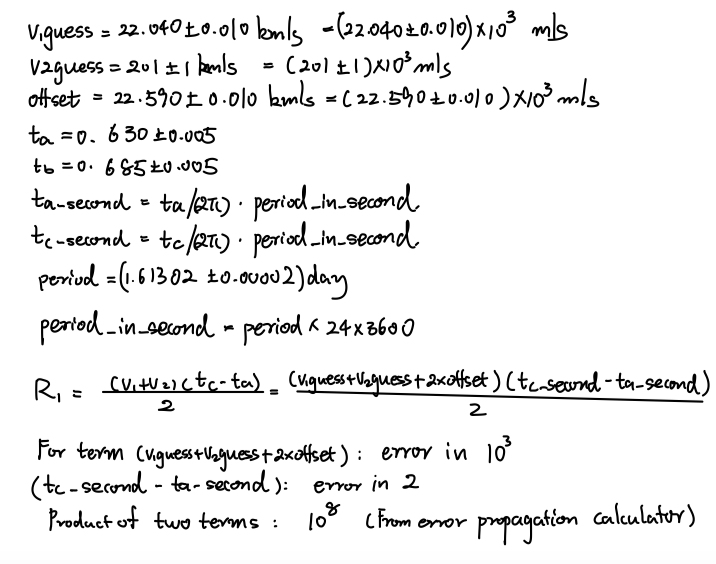 V1guess = 22.040±0.010 km/s = (22.040±0.010)×10³ m/s
V2guess = 201 ± 1 km/s = (201 ± 1)×10³ m/s
offset = 22.590 ± 0.010 km/s = (22.590±0.010)×10³ m/s
ta = 0.630 ±0.005
tb = 0.685±0.005
ta-second = ta/(2π) · period_in_second
tc-second = tc/(2π) · period_in_second
period = (1.61302 ±0.00002) day
period_in_second = period × 24×3600
R₁ = (V1+V2)(tc-ta)/2 = (V1guess+V2guess+2×offset)(tc-second-ta-second)/2
For term (V1guess+V2guess+2×offset): error in 10³
(tc-second - ta-second): error in 2
Product of two terms : 10⁸ (From error propagation calculator)